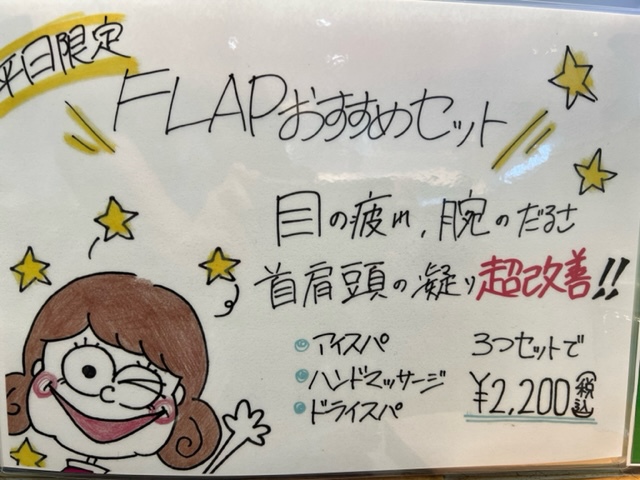 平日限定
FLAPおすすめセット
目の疲れ、腕のだるさ
首肩頭の凝り超改善!!
アイスパ
ハンドマッサージ
ドライスパ
3つセットで
¥2,200(税込)